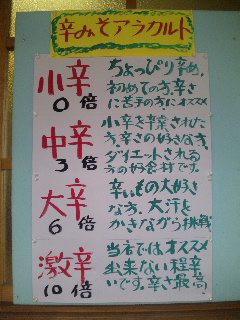 辛みそアラカルト
小辛
0倍
ちょっぴり辛め、
初めての方辛さ
に苦手の方にオススメ
中辛
3倍
小辛を卒業された
方、辛さの好きな方、
ダイエットされる
方の好食材です。
大辛
6倍
辛いもの大好き
な方、大汗を
かきながら挑戦
激辛
10倍
当店ではオススメ
出来ない程辛
いです。辛さ最高